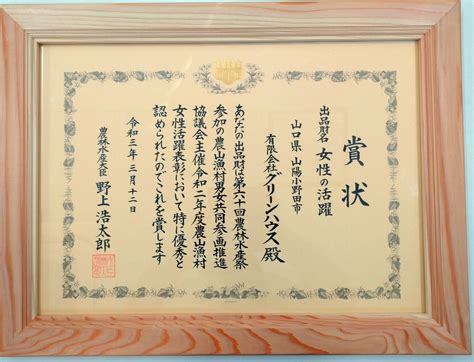 賞状
出品財名 女性の活躍
山口県 山陽小野田市
有限会社グリーンハウス 殿
あなたの出品財は第六十回農林水産祭
参加の農山漁村男女共同参画推進
協議会主催令和二年度農山漁村
女性活躍表彰において特に優秀と
認められたのでこれを賞します
令和三年三月十二日
農林水産大臣 野上浩太郎